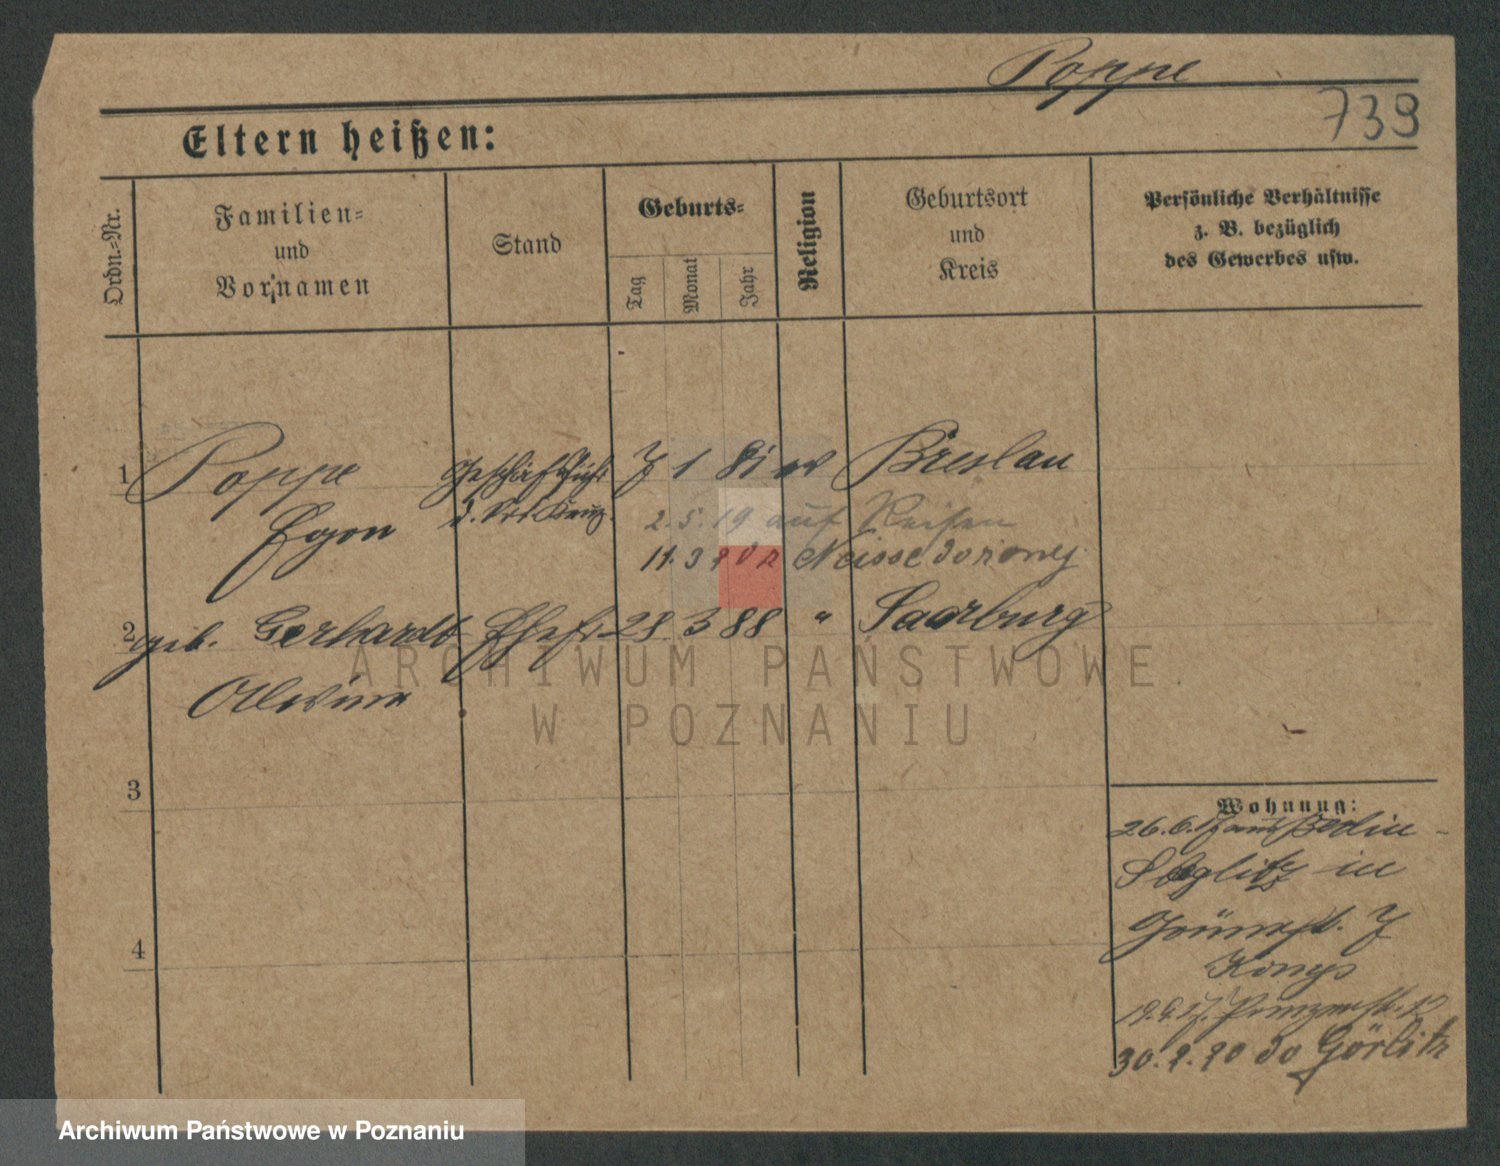 Poppe
739
Eltern heißen:
Ordn.=Nr.
Familien=
und
Vornamen
Stand
Geburts=
Tag
Monat
Jahr
Religion
Geburtsort
und
Kreis
Persönliche Verhältnisse
z. B. bezüglich
des Gewerbes usw.
1 Poppe 7 1 81 ev Breslau
Egon
2. 5. 19 auf Reisen
11. 3 Neisse
2 geb. Gerhardt Ehefr. 28 3 88 " Saarburg
3
4
Wohnung:
26.6.17 aus Berlin -
Steglitz in
7
30. 20 do Görlitz
ARCHIWUM PAŃSTWOWE
W POZNANIU
Archiwum Państwowe w Poznaniu